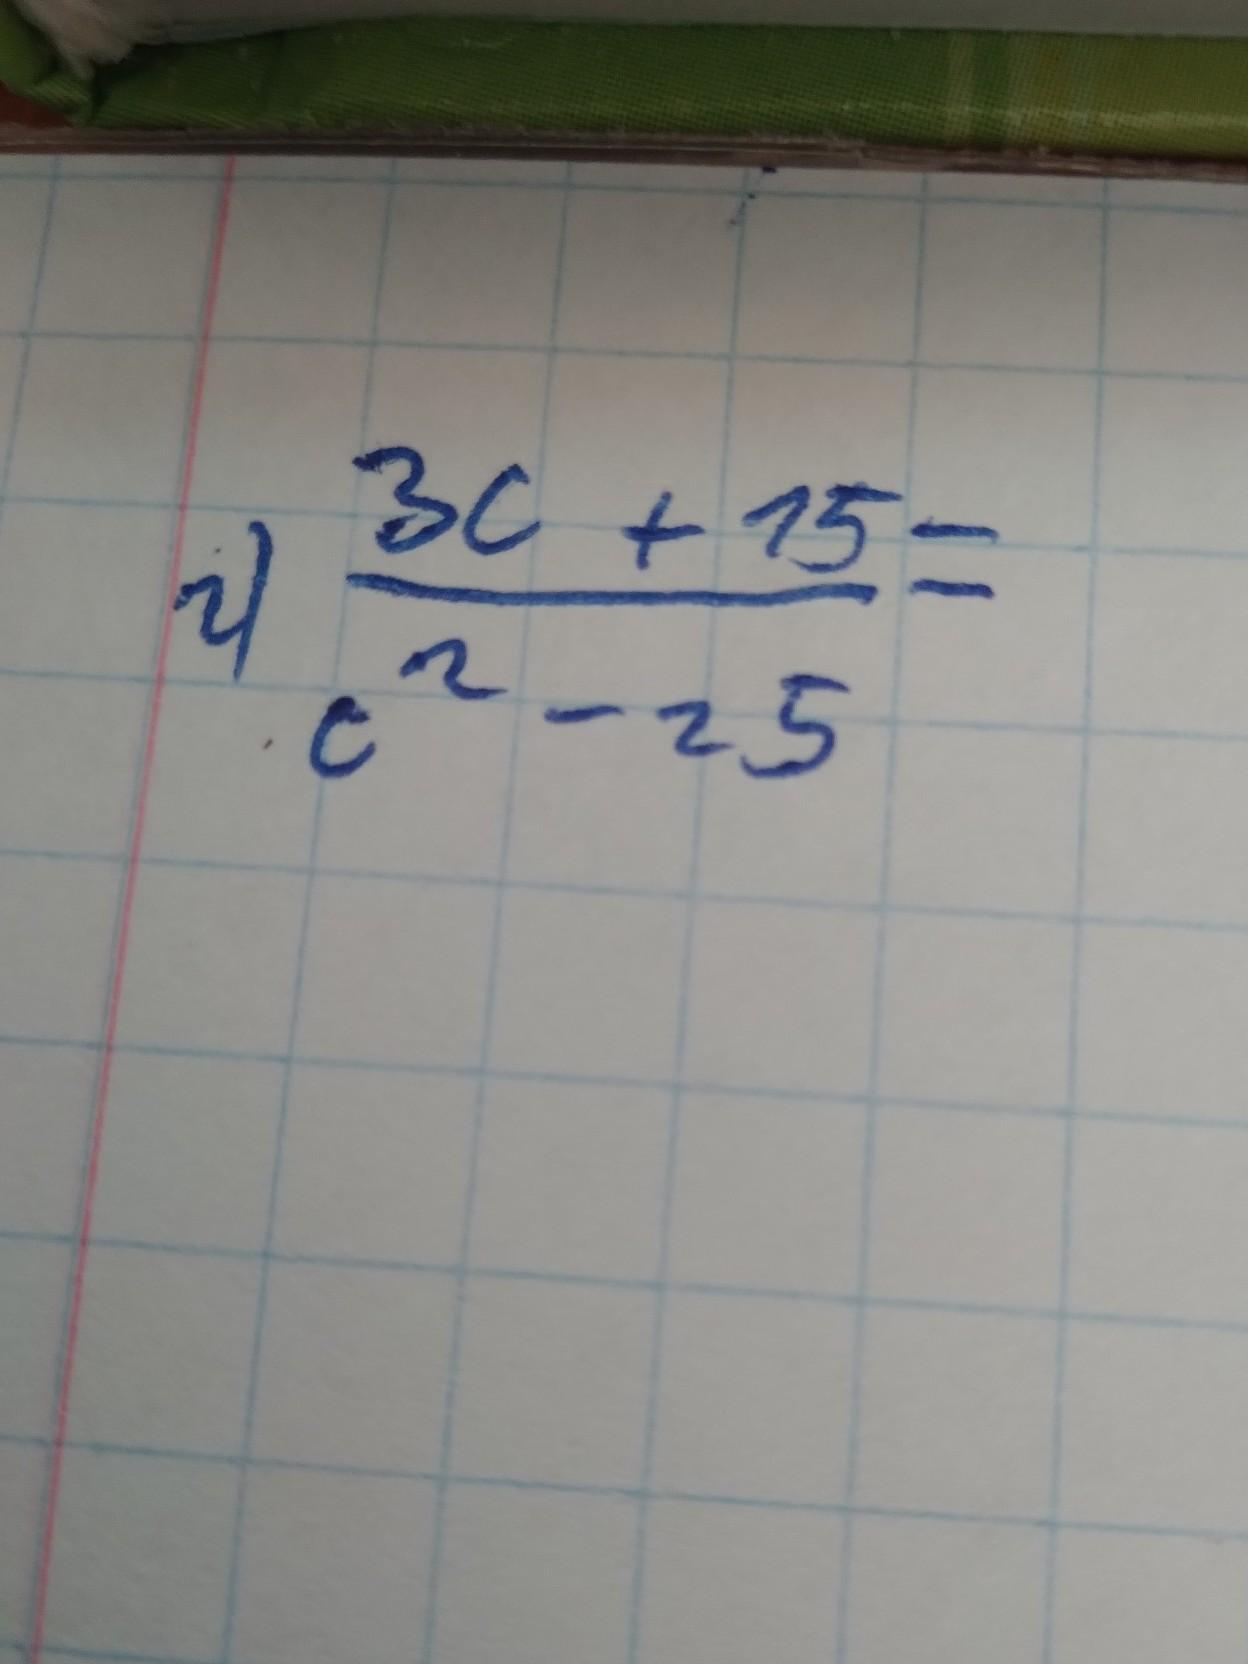 2) 3c + 15 =
c² - 25